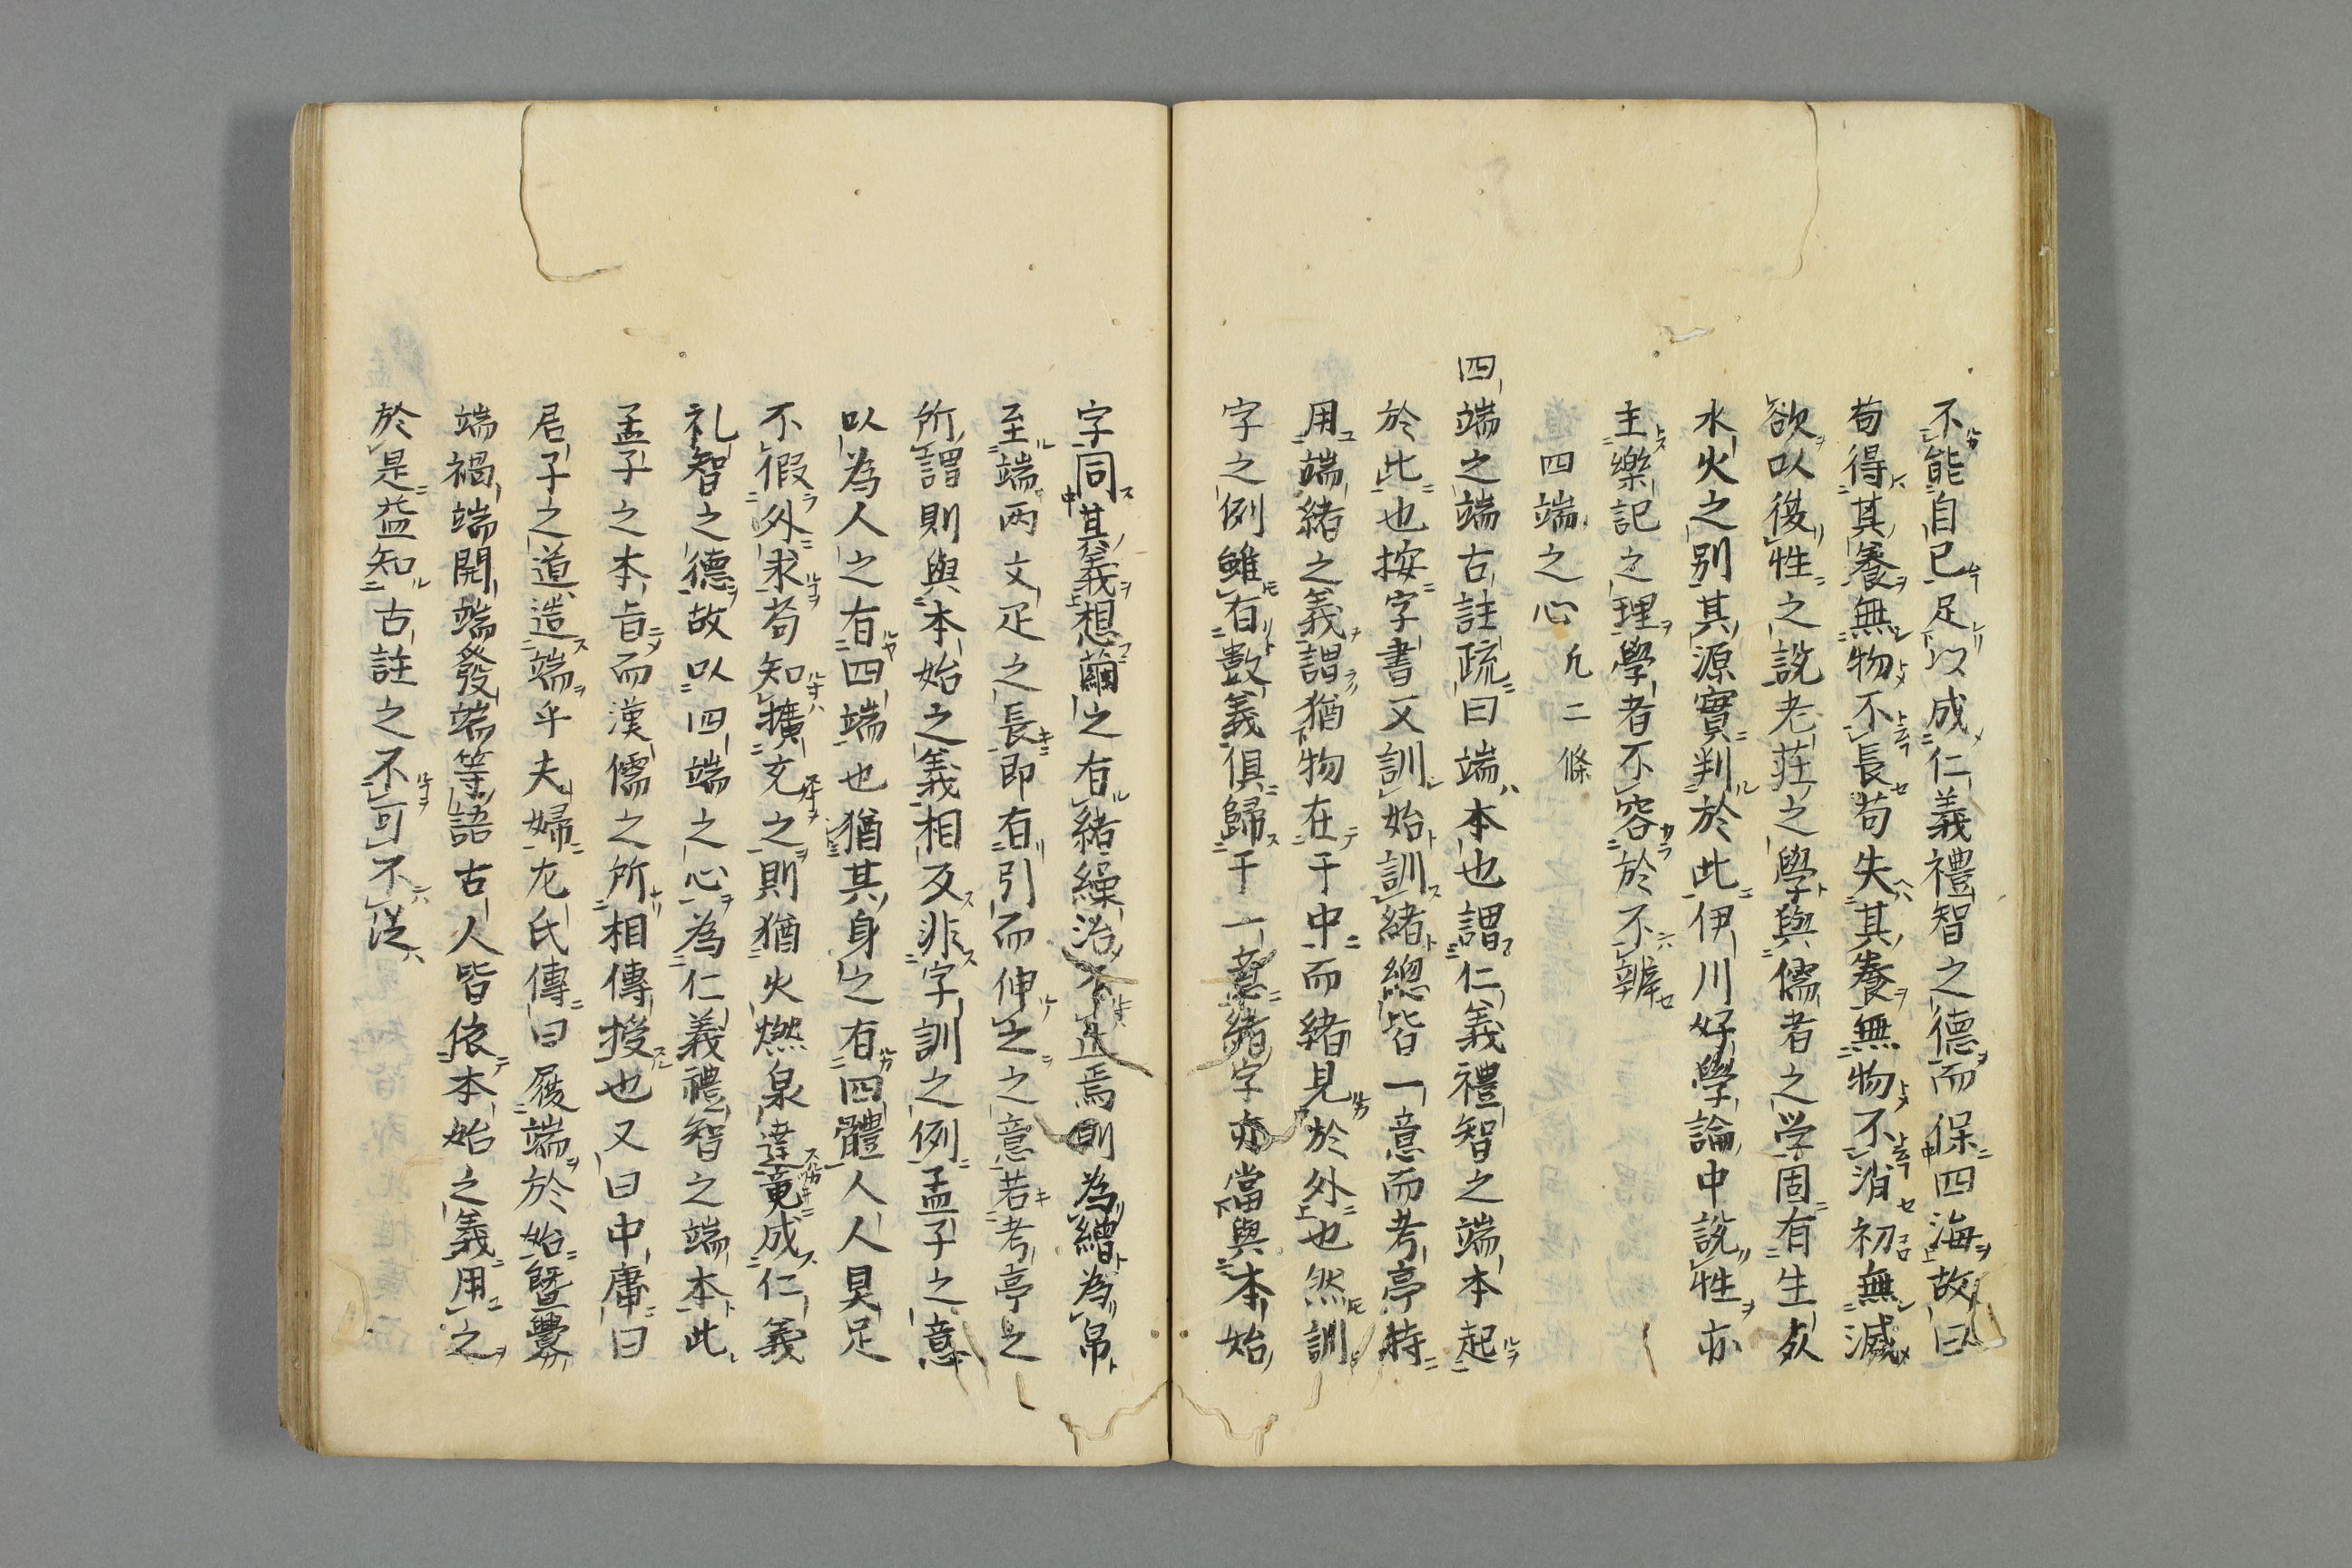 不能自已足以成仁義禮智之德而保四海故曰
苟得其養無物不長苟失其養無物不消初無滅
欲以復性之説老荘之學與儒者之学固有生死
水火之別其源實判於此伊川好學論中説性亦
主樂記之理學者不容於不辨
四端之心 凢二條
四端之端古註疏曰端本也謂仁義禮智之端本起
於此也按字書又訓始訓緒總皆一意而考亭特
用端緒之義謂猶物在于中而緒見於外也然訓
字之例雖有數義俱歸于一意緒字亦當與本始
字同其義想繭之有緒繰治不止焉則為繒為帛
至端両文疋之長即有引而伸之之意若考亭之
所謂則與本始之義相反非字訓之例孟子之意
以為人之有四端也猶其身之有四體人人具足
不假外求苟知擴充之則猶火燃泉達竟成仁義
礼智之德故以四端之心為仁義禮智之端本此
孟子之本旨而漢儒之所相傳授也又曰中庸曰
君子之道造端乎夫婦左氏傳曰履端於始曁釁
端禍端開端發端等語古人皆依本始之義用之
於是益知古註之不可不从